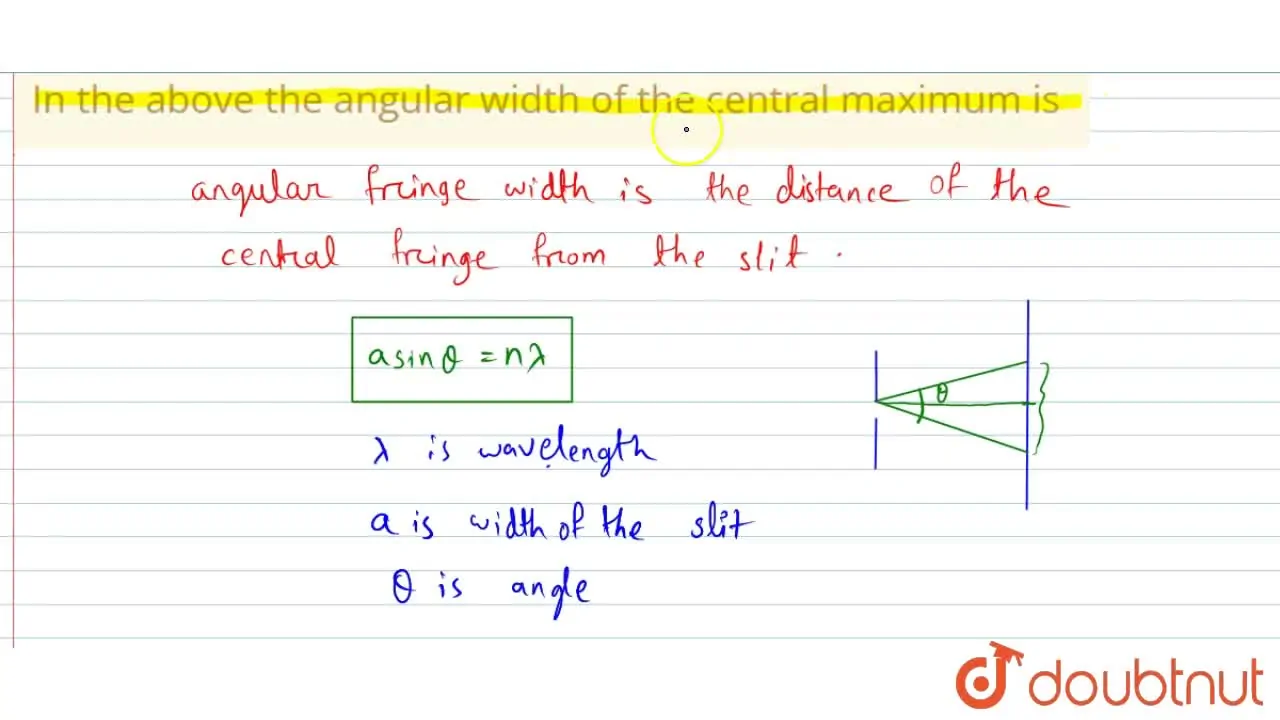 In the above the angular width of the central maximum is
angular fringe width is the distance of the
central fringe from the slit .
a sin θ = nλ
θ
λ is wavelength
a is width of the slit
θ is angle
doubtnut